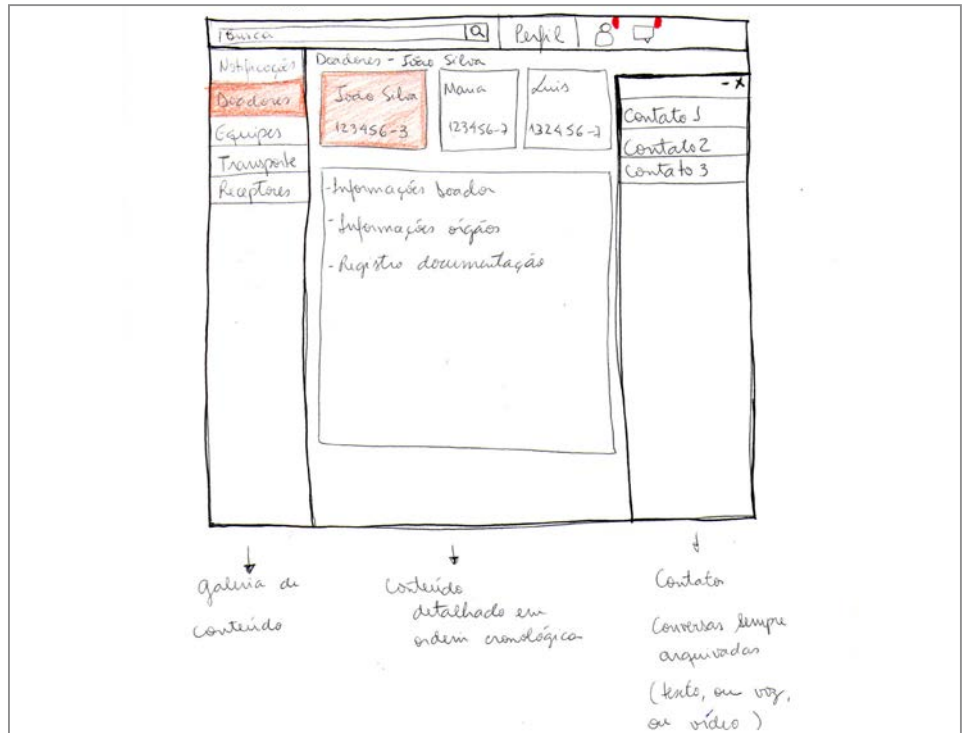 Busca
Perfil
Notificações
Doadores
Equipes
Transporte
Receptores
Doadores - João Silva
João Silva
123456-3
Maria
123456-7
Luis
132456-7
- Informações doador
- Informações orgãos
- Registro documentação
- x
Contato 1
Contato 2
Contato 3
galeria de
conteúdo
Conteúdo
detalhado em
ordem cronológica
Contatos
Conversas sempre
arquivadas
(texto, ou voz,
ou vídeo)